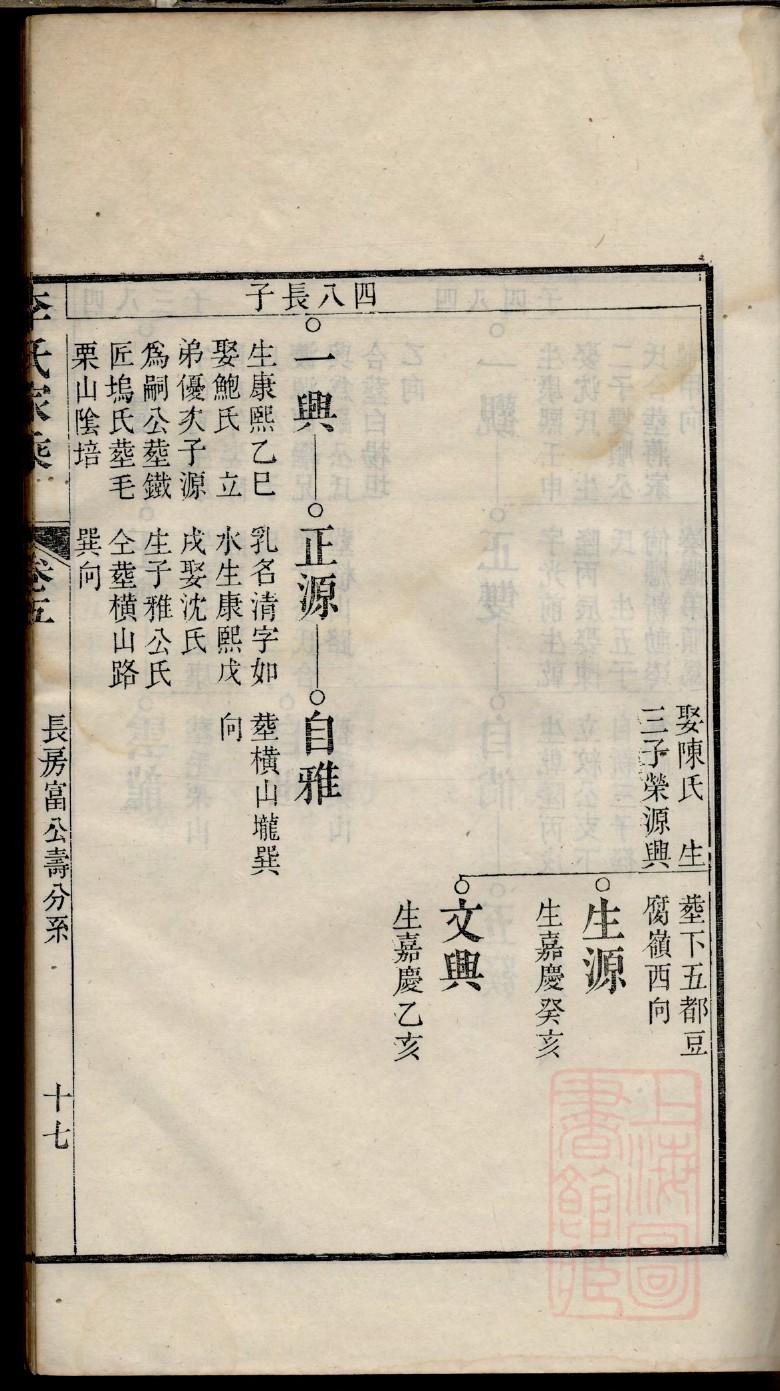 四八長子
娶陳氏　生
三子榮源興
塟下五都豆
腐嶺西向
生源
生嘉慶癸亥
文興
生嘉慶乙亥
一興
生康熙乙巳
娶鮑氏　立
弟優次子源
爲嗣公塟鐵
匠塢氏塟毛
栗山陰培
正源
乳名清字如
水生康熙戊
戌娶沈氏
生子雅公氏
仝塟橫山路
巽向
自雅
塟橫山壠巽
向
李氏家乘
卷五
長房富公壽分系
十七
上海圖書館藏